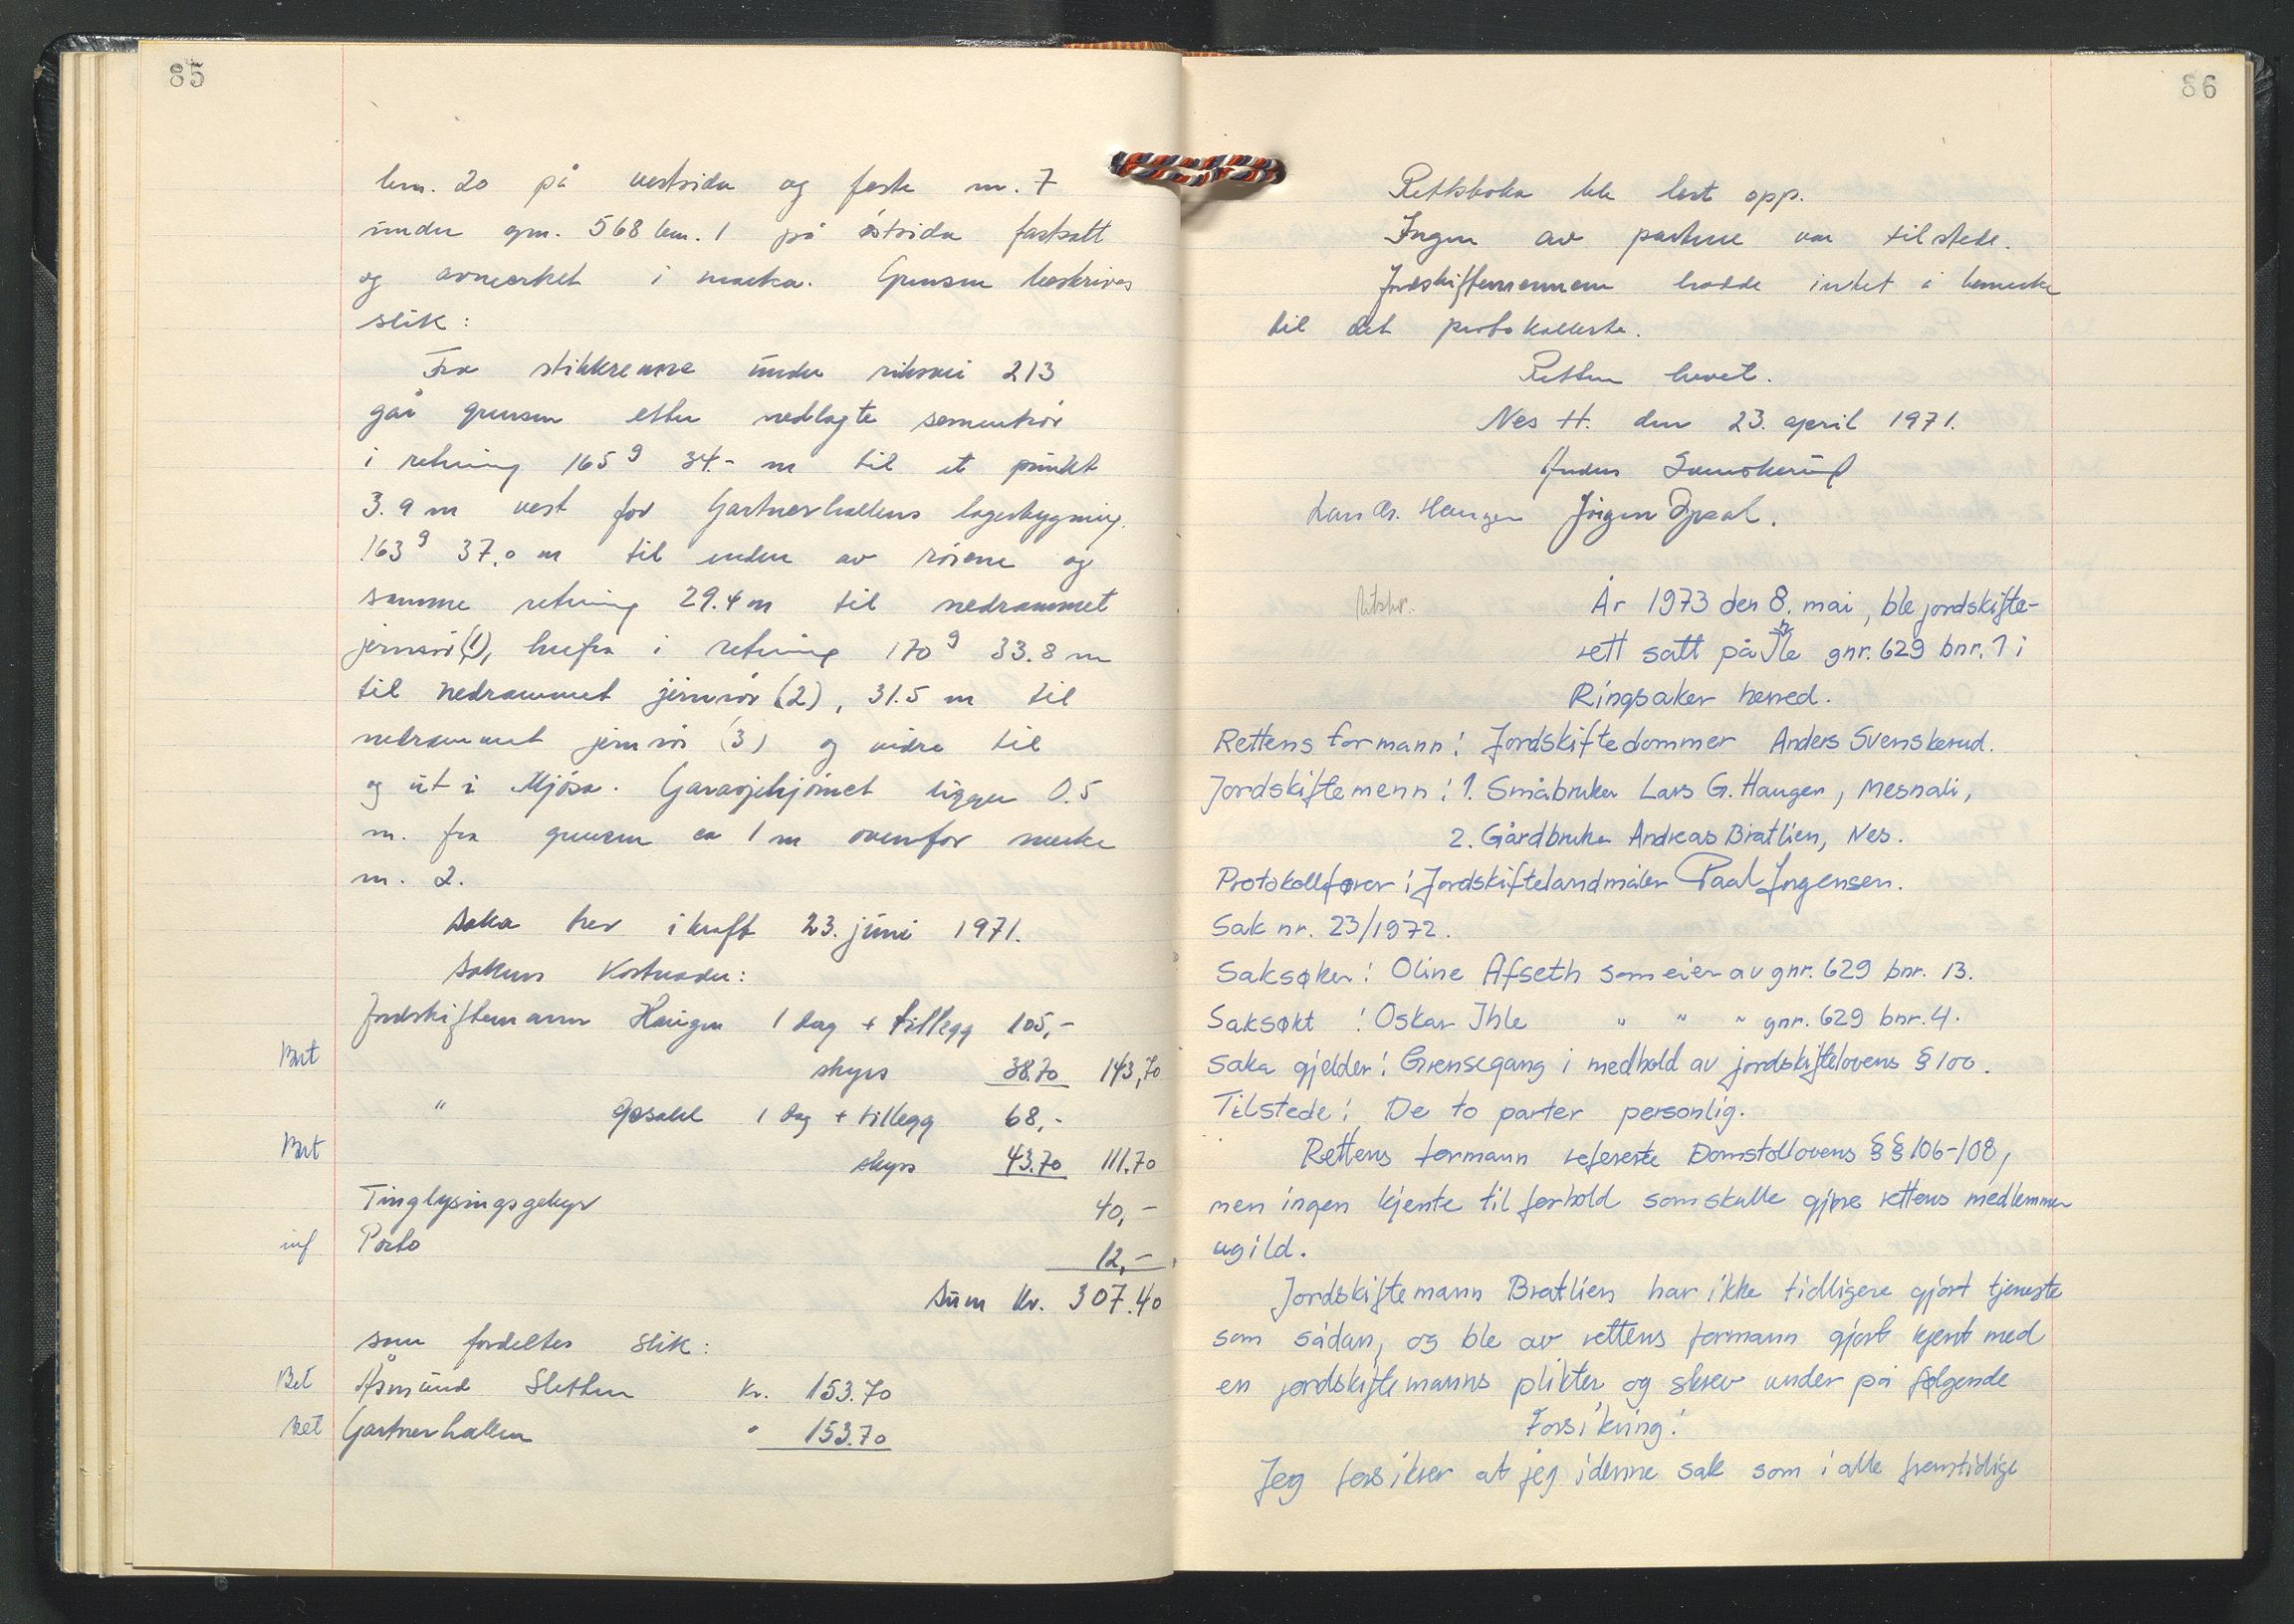 85
bnr. 20 på vestsida og feste nr. 7
under gnr. 568 bnr. 1 på östsida fastsatt
og avmerket i marka. Grensen beskrives
slik:
Fra stikkrenne under riksvei 213
går grensen etter nedlagte sementrör
i retning 165 g 34.- m til et punkt
3.9 m vest for Gartnerhallens lagerbygning.
163 g 37.0 m til enden av rörene og
samme retning 29.4 m til nedrammet
jernrör (1), herfra i retning 170 g 33.8 m
til nedrammet jernrör (2), 31.5 m til
nedrammet jernrör (3) og videre til
og ut i Mjösa. Garasjehjörnet ligger 0.5
m. fra grensen ca 1 m ovenfor merke
nr. 2.
Saka trer i kraft 23. juni 1971.
Sakens kostnader:
Jordskiftemann Haugen 1 dag + tillegg 105,-
Bet skyss 38.70 143,70
" Opsahl 1 dag + tillegg 68,-
Bet skyss 43.70 111.70
Tinglysingsgebyr 40,-
Porto 12,-
Sum Kr. 307.40
som fordeltes slik:
Bet Åsmund Sletten Kr. 153.70
Bet Gartnerhallen " 153.70
86
Rettsboka ble lest opp.
Ingen av partene var tilstede.
Jordskiftemennene hadde intet å bemerke
til det protokollerte.
Retten hevet.
Nes H. den 23. april 1971.
Anders Svenskerud
Lars G. Haugen Jörgen Opsal.
År 1973 den 8. mai, ble jordskifte-
rett satt på Ihle gnr. 629 bnr. 1 i
Ringsaker herred.
Rettens formann: Jordskiftedommer Anders Svenskerud.
Jordskiftemenn: 1. Småbruker Lars G. Haugen, Mesnali,
2. Gårdbruker Andreas Bratlien, Nes.
Protokollfører: Jordskiftelandmåler Paal Jørgensen.
Sak nr. 23/1972.
Saksøker: Oline Afseth som eier av gnr. 629 bnr. 13.
Saksøkt : Oskar Ihle " " " gnr. 629 bnr. 4.
Saka gjelder: Grensegang i medhold av jordskiftelovens § 100.
Tilstede: De to parter personlig.
Rettens formann refererte Domstollovens §§ 106-108,
men ingen kjente til forhold som skulle gjøre rettens medlemmer
ugild.
Jordskiftemann Bratlien har ikke tidligere gjort tjeneste
som sådan, og ble av rettens formann gjort kjent med
en jordskiftemanns plikter, og skrev under på følgende
Forsikring:
Jeg forsikrer at jeg i denne sak som i alle fremtidige